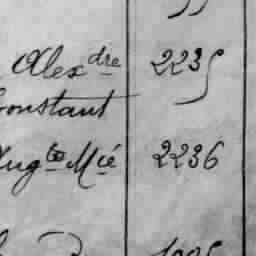 Alexdre 2235
Constant
Augte Mié 2236